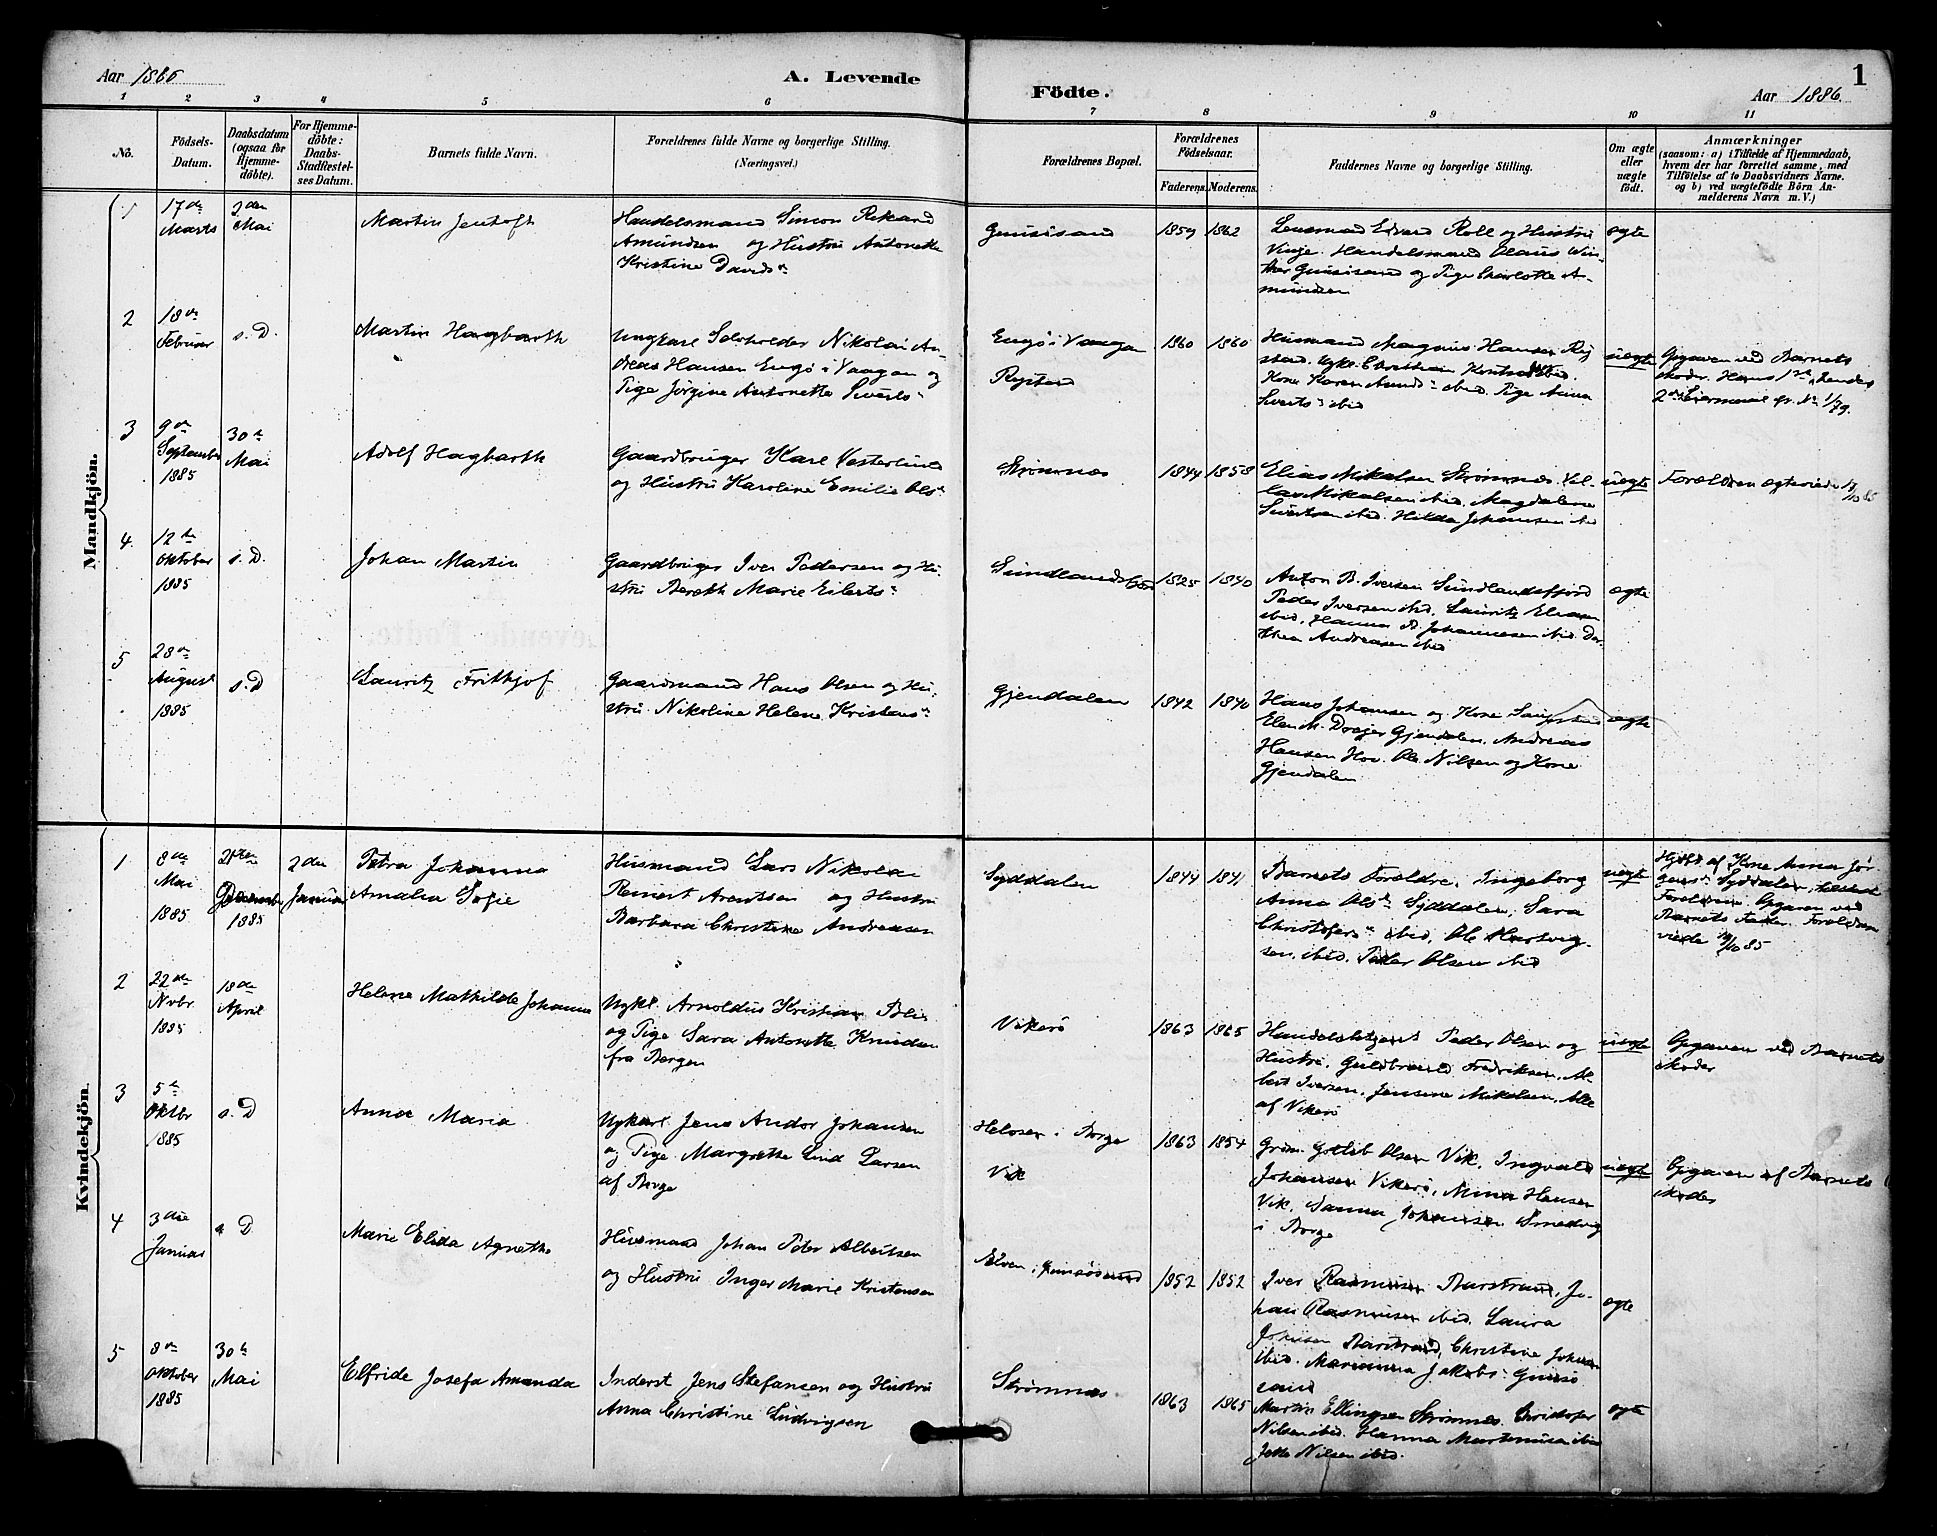 Aar 1886
A. Levende
Födte.
Aar 1886.
1
1 2 3 4 5 6 7 8 9 10 11
No.
Födsels-
Datum.
Daabsdatum
(ogsaa for
Hjemme-
döbte).
For Hjemme-
döbte:
Daabs-
Stadfæstel-
ses Datum.
Barnets fulde Navn.
Forældrenes fulde Navne og borgerlige Stilling.
(Næringsvei.)
Forældrenes Bopæl.
Forældrenes
Födselsaar.
Faderens. Moderens.
Faddernes Navne og borgerlige Stilling.
Om ægte
eller
uægte
födt.
Anmærkninger
(saasom: a) i Tilfælde af Hjemmedaab,
hvem der har forrettet samme, med
Tilföielse af to Daabsvidners Navne.
og b) ved uægtefödte Börn An-
melderens Navn m. V.)
Mandkjön.
1
17de
Marts
2den
Mai
Martin Jentoft
Handelsmand Simon Rikard
Amundsen og Hustru Antonette
Kristine Davids
Gimsösand
1859 1862
Lensmand Edvard Roll og Hustru
Vinje. Handelsmand Olaus Win-
ther Gimsösand og Pige Charlotte A-
mundsen
ægte
2
18de
Februar
s. D.
Martin Hagbarth
Ungkarl Selvholder Nikolai An-
dreas Hansen Engö i Vaagan og
Pige Jörgine Antonette Siverts
Engö i Vaagan
Rystad
1860 1860
Husmand Magnus Hansen Ryst
stad. Ugkr. Christian
Kone Karen Amunds ibid. Pige Anna
Siverts ibid
uægte
Opgaven ved Barnets
Moder. Hans 1ste, hendes
2det Leiermaal fr. No 1/79.
3
9de
September
1885
30te
Mai
Adolf Hagbarth
Gaardbruger Karl Vesterlund
og Hustru Karoline Emilie Ols
Strömnæs
1844 1858
Elias Mikalsen Strömnæs. Vil-
Mikalsen ibid. Magdalene
Sivertsen ibid. Hilda Johansen ibid
uægte
Forældren ægteviede
4.
12te
Oktober
1885
s. D.
Johan Martin
Gaardbruger Iver Pedersen og Hu-
stru Bereth Marie Eilerts
Sundlandsfjord
1825 1840
Anton B. Iversen Sundlandsfjord
Peder Iversen ibid. Lauritz
ibid. Hanna B. Johannesen ibid. Dor-
thea Andreasen ibid
ægte
5
28de
August
1885
s. D
Lauritz Frithjof
Gaardmand Hans Olsen og Hu-
stru Nikoline Helene Kristens
Gjendalen
1842 1840
Hans Johansen og Kone
Elen M. Gjendalen. Andreas
Hansen Hov. Ole Nilsen og Kone
Gjendalen
ægte
Kvindekjön
1
8de
Mai
1885
Desember
1885
2den
Januar
Petra Johanna
Amalia Sofie
Husmand Lars Nikolai
Reinert Arentsen og Hustru
Barbara Christine Andreasen
Syddalen
1844 1841
Barnets Forældre. Ingeborg
Anna Ols Syddalen, Sara
Christofers ibid, Ole Hartvig-
sen ibid. Peder Olsen ibid
uægte
Hjdbt. af Kone Anna Jör-
gens Syddalen,
Forældren. Opgaven ved
Barnets Fader. Forældren
viede 85
2
22de
Novbr.
1885
18de
April
Helene Mathilde Johanna
Ugkl. Arnoldus Kristian
og Pige Sara Antonette Knudsen
fra Bergen
Vikerö
1863 1865
Handelsbetjent Peder Olsen og
Hustru, Guldbrand Fredriksen, Al-
bert Iversen, Jensine Mikalsen. Alle
af Vikerö
uægte
Opgaven ved Barnets
Moder
3
5te
Oktbr
1885
s. D
Anna Maria
Ugkarl Jens Andor Johansen
og Pige Margrethe Lind Larsen
af Borge
i Borge
Vik
1863 1854
Gotlib Olsen Vik, Ingvald
Johansen Vikerö, Anna Hansen
Vik, Sanna Johansen Smedvig
i Borge
uægte
Opgaven af Barnets
Moder
4
3die
Januar
s. D
Marie Elida Agnethe
Husmand Johan Peter Albertsen
og Hustru Inger Marie Kristensen
Elven i Gimsösand
1852 1852
Iver Rasmussen Barstrand, Jo-
han Rasmussen ibid. Laura
Johnsen Barstrand, Christine Johnsen
ibid. Marianna Jakobs Gimsö
sand
ægte
5
8de
Oktober
1885
30te
Mai
Elfride Josefa Amanda
Inderst Jens Stefansen og Hustru
Anna Christine Ludvigsen
Strömnæs
1863 1865
Martin Ellingsen Strömnæs. Cristofer
Nilsen ibid. Hanna Martenusen ibid
Jette Nilsen ibid.
ægte